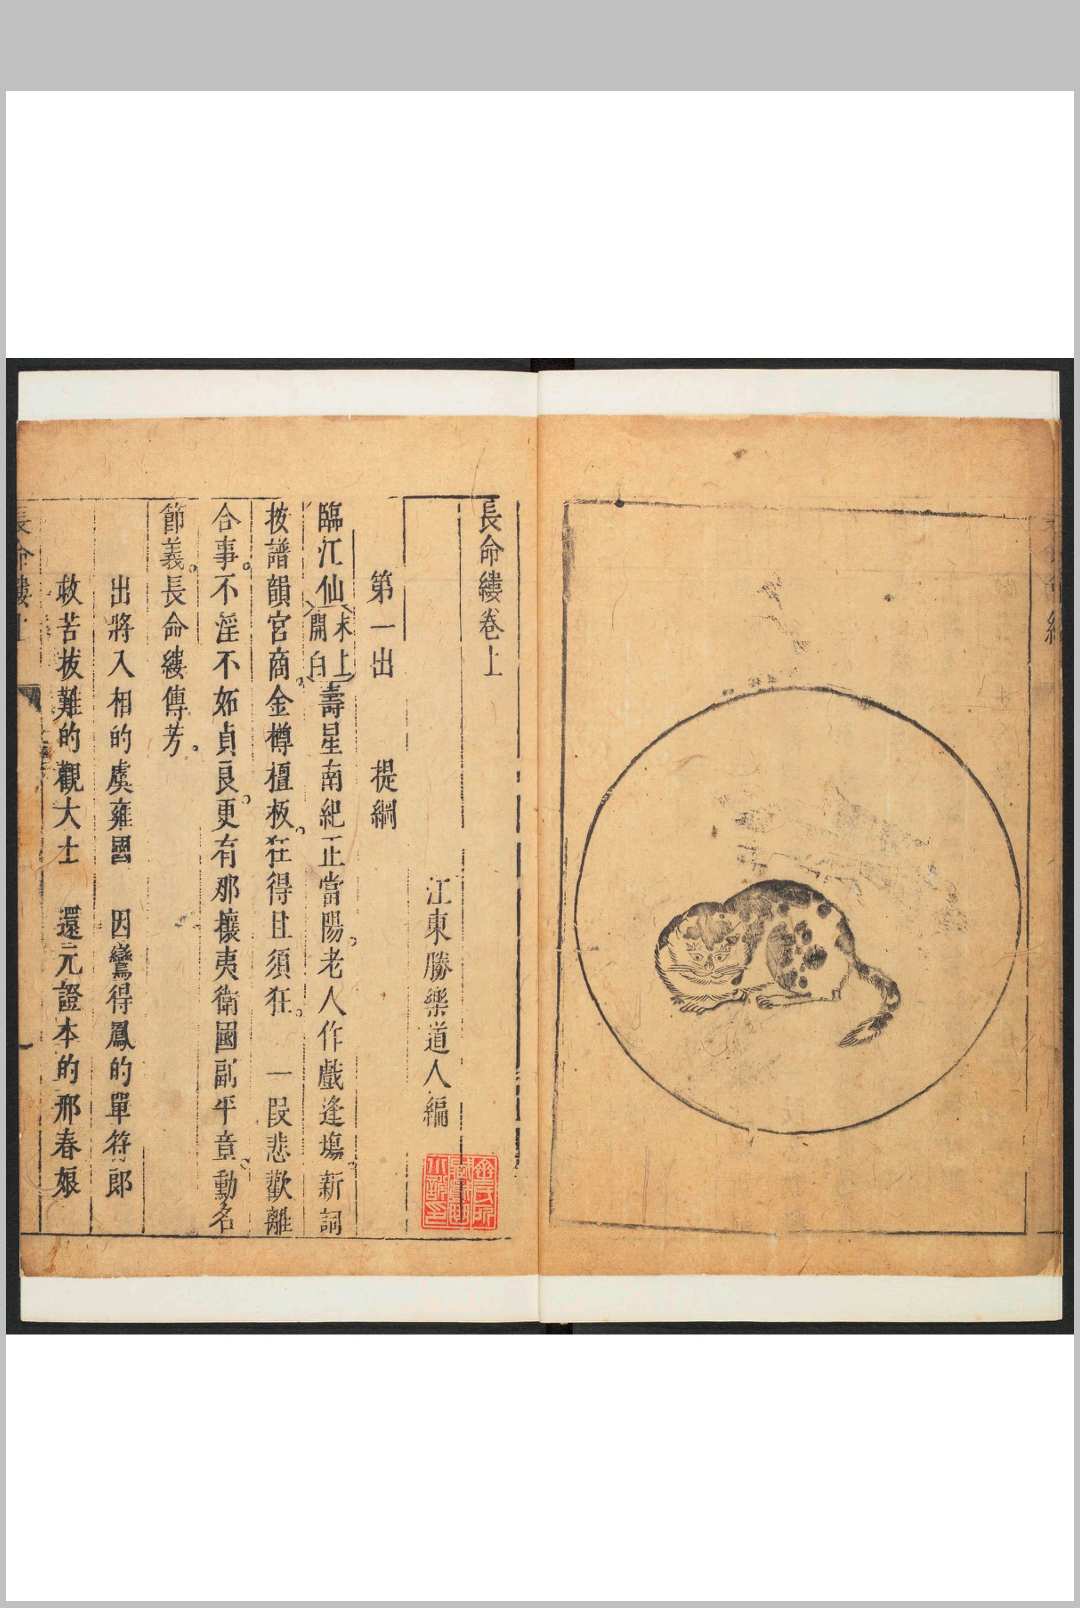 長命縷卷上
江東勝樂道人編
第一出　提綱
臨江仙 末上開白 壽星南紀正當陽。老人作戲逢塲。新詞
按譜韻宮商。金樽檀板。狂得且須狂。　一段悲歡離
合事。不淫不妬貞良。更有那攘夷衛國副平章。勳名
節義。長命縷傳芳。
出將入相的虞雍國　因鸞得鳳的單符郎
救苦拔難的觀大士　還元證本的邢春娘
長命縷上